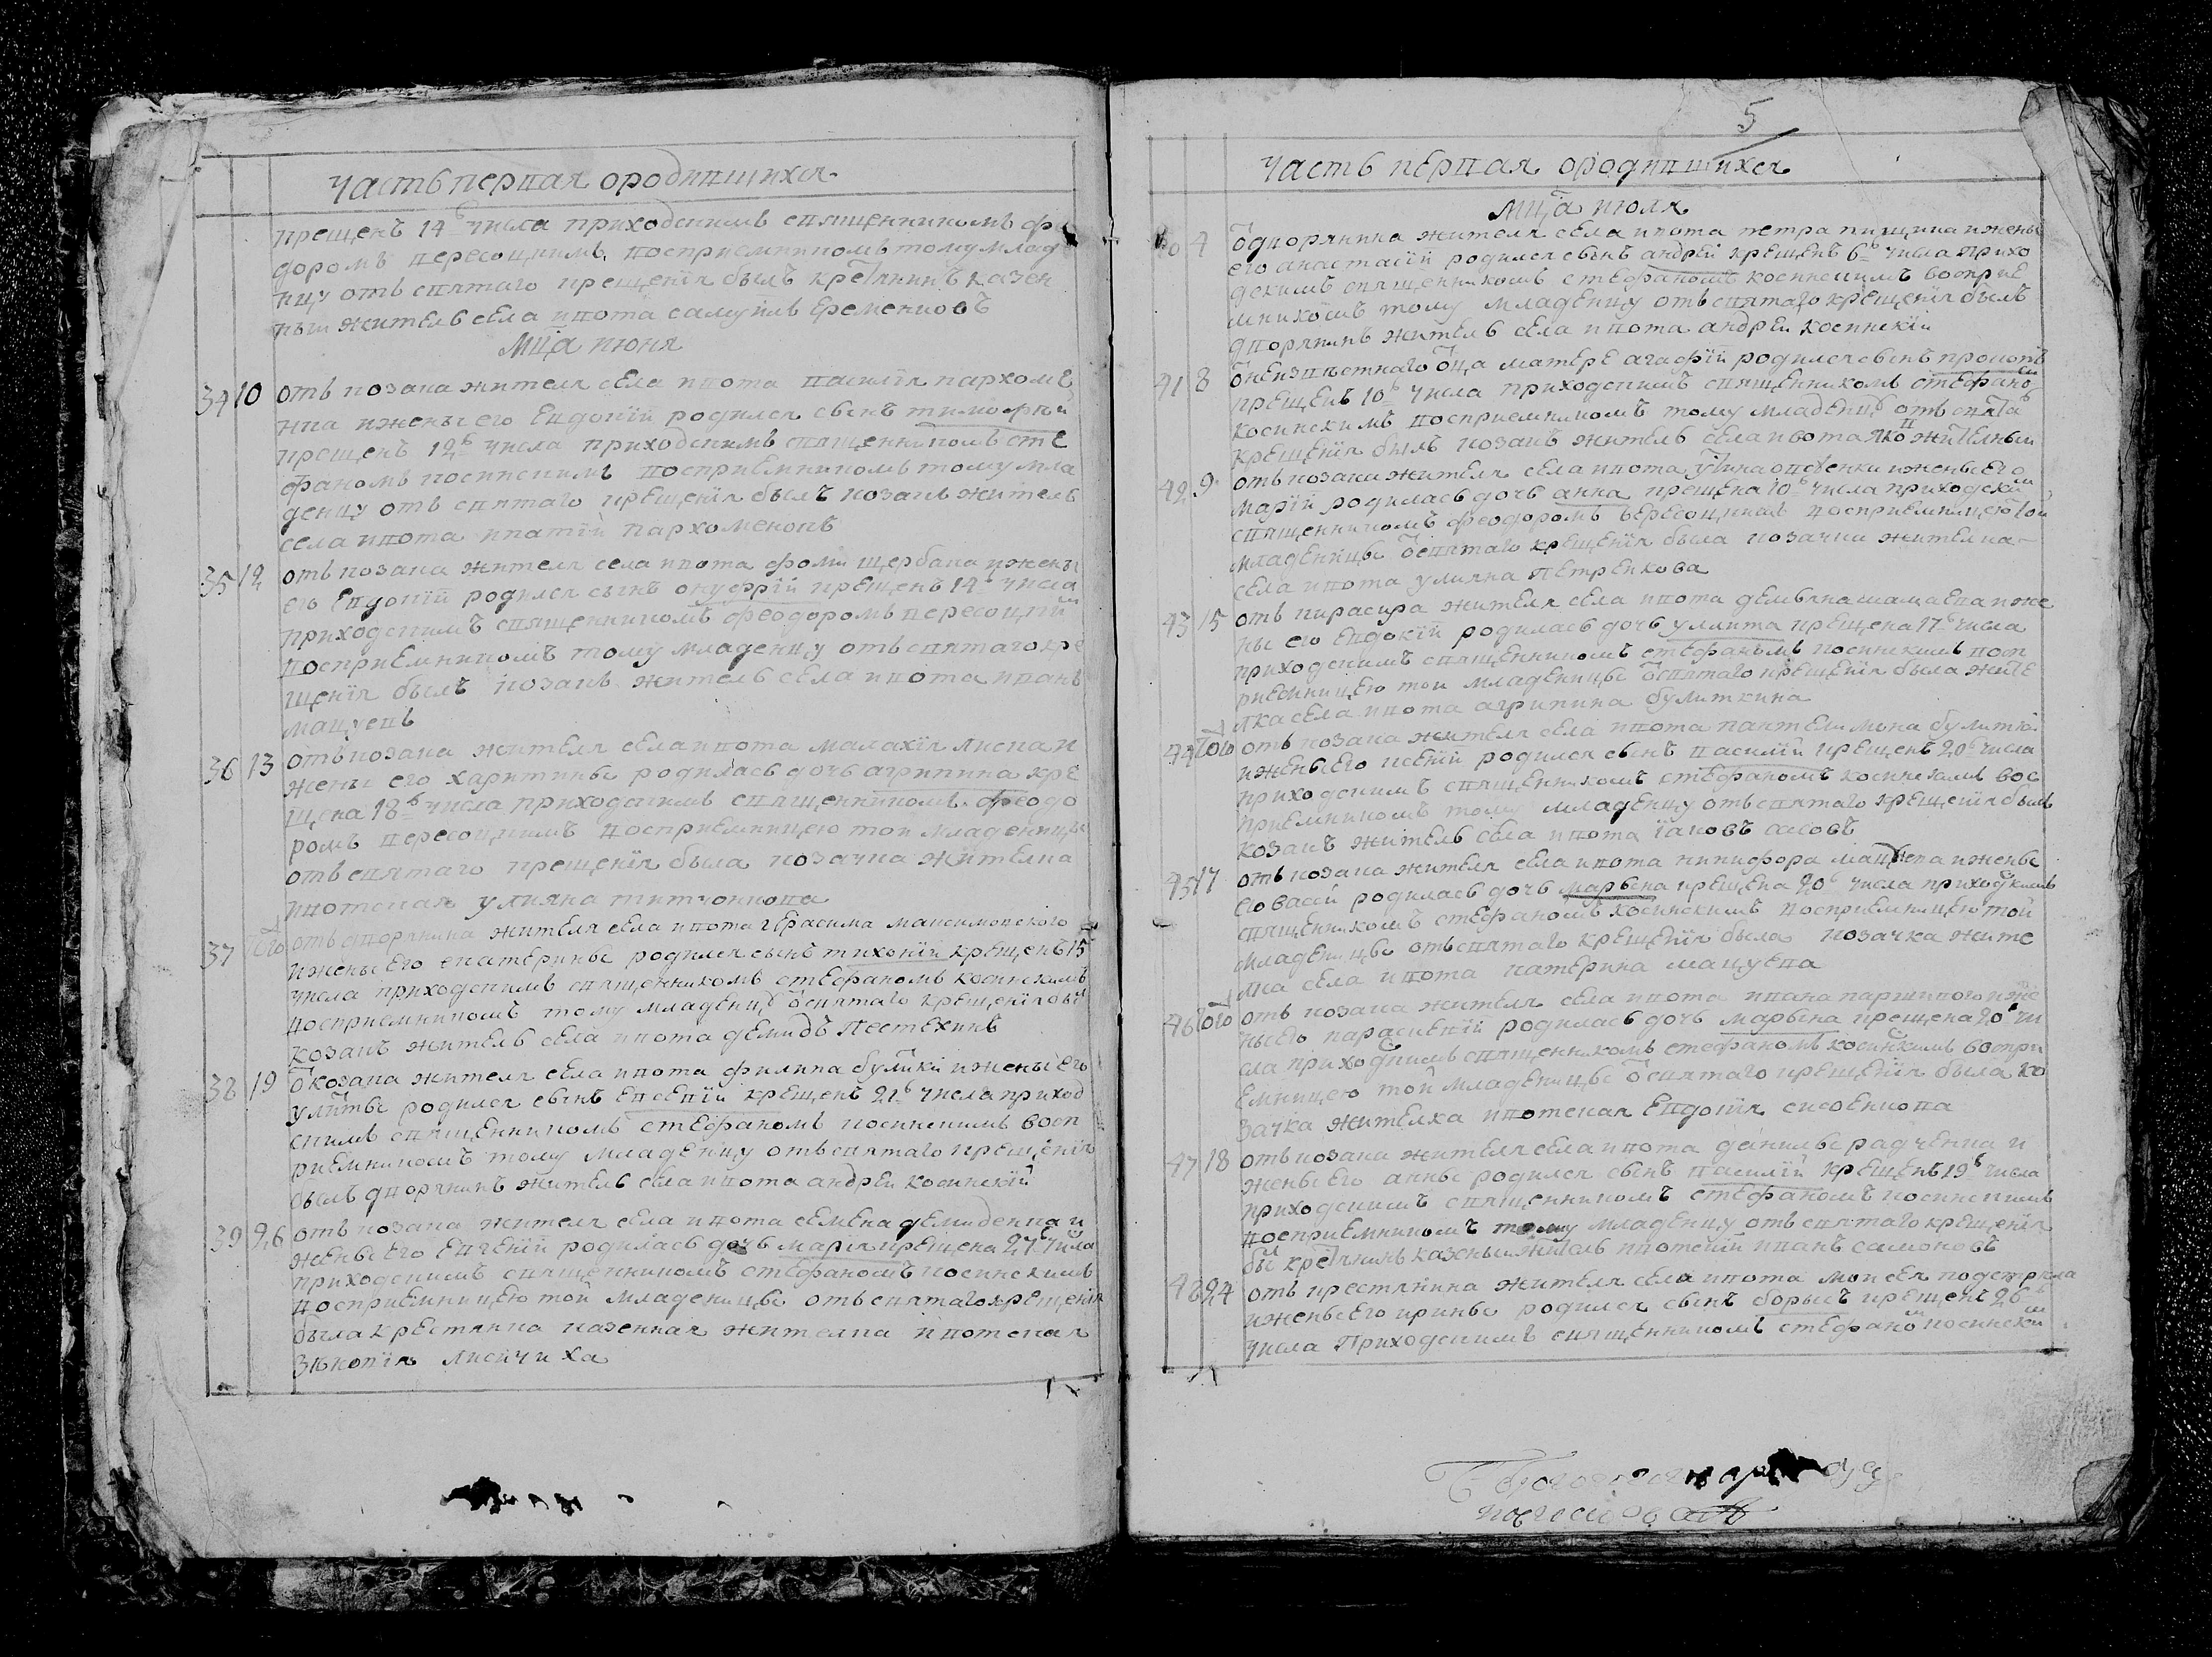 часть первая ородившихся
крещенъ 14 числа приходскимъ священникомъ фе
доромъ пересоцкимъ восприемникомъ тому млад
нцу отъ святаго крещенія былъ кретянинъ казен
ный житель села ивота самуилъ еременковъ
Мца июня
34 10 отъ козака жителя села ивота василія пархоме
нка ижены его евдокій родился сынъ тимофѣй
крещенъ 12 числа приходскимъ священникомъ сте
фаномъ косинскимъ восприемникомъ тому мла
денцу отъ святаго крещенія былъ козакъ житель
села ивота ипатій пархоменковъ
35 12 отъ козака жителя села ивота фомы щербака ижены
его евдокій родился сынъ онуфрій крещенъ 14 числа
приходскимъ священникомъ феодоромъ пересоцкий
восприемникомъ тому младенцу отъ святаго кре
щенія былъ козакъ житель села ивота иванъ
мацуевъ
36 13 отъ козака жителя села ивота малахія лиска и
жены его харитины родилась дочь агрипина кре
щена 18 числа приходскимъ священникомъ феодо
ромъ пересоцкимъ восприемницею той младеницы
отъ святаго крещенія была козачка жителка
ивотская уляна титчонкова
37 того отъ дворянина жителя села ивота герасима максимовского
ижены его екатерины родился сынъ тихоній крещенъ 15
числа приходскимъ священникомъ стефаномъ косинскимъ
восприемникомъ тому младенцу ѿ святаго крещенія былъ
козакъ житель села ивота демидъ пестехинъ
38 19 ѿ козака жителя села ивота филипа булитки ижены его
улиты родился сынъ евсевій крещенъ 21 числа приход
скимъ священникомъ стефаномъ косинскимъ восп
риемникомъ тому младенцу отъ святаго крещенія
былъ дворянинъ житель села ивота андрей косинскій
39 26 отъ козака жителя села ивота семена демиденка и
жены его евгеній родилась дочь марія крещена 27 числа
приходскимъ священникомъ стефаномъ косинскимъ
восприемницею той младеницы отъ святаго крещенія
была крестянка казенная жителка ивотская
зѣновія лисичиха
5
часть первая ородившихся
Мца июля
40 4 ѿ дворянина жителя села ивота петра пищика ижены
его анастасій родился сынъ андрей крещенъ 6 числа прихо
дскимъ священникомъ стефаномъ косинскимъ восприе
мникомъ тому младенцу отъ святаго крещенія былъ
дворянинъ житель села ивота андрей косинскій
41 8 ѿ неизвѣстнаго ѿца матере агафій родился сынъ прокопъ
крещенъ 10 числа приходскимъ священникомъ стефаном
косинскимъ восприемникомъ тому младенцу отъ святаг
крещенія былъ козакъ житель села ивота
42 9 отъ козака жителя села ивота ижены его
марій родилась дочь анна крещена 10 числа приходским
священникомъ феодоромъ пересоцким восприемницею той
младеницы ѿ святаго крещенія была козачка жителка
села ивота уляна петренкова
43 15 отъ кирасира жителя села ивота демьяна шамаева иже
ны его евдокій родилась дочь улита крещена 17 числа
приходскимъ священникомъ стефаномъ косинскимъ восп
риемницею той младеницы ѿ святаго крещенія была жите
лка села ивота агрипина булиткина
44 того отъ козака жителя села ивота пантелимона булитки
ижены его ксеній родился сынъ василій крещенъ 20 числа
приходскимъ священникомъ стефаномъ косинскимъ вос
приемникомъ тому младенцу отъ святаго крещенія былъ
козакъ житель села ивота іаковъ
45 17 отъ козака жителя села ивота никифора мацуева ижены
его васой родилась дочь марьена крещена 20 числа приходскимъ
священникомъ стефаномъ косинскимъ восприемницею той
младеницы отъ святаго крещенія была козачка жите
лка села ивота катерина мацуева
46 того отъ козака жителя села ивота ивана паршикого иже
ны его параскевій родилась дочь марьена крещена 20 чи
сла приходскимъ священникомъ стефаномъ косинскимъ воспри
емницею той младеницы ѿ святаго крещенія была ко
зачка жителка ивотская евдокія сисоенкова
47 18 отъ козака жителя села ивота данилы радченка и
жены его анны родился сынъ василій крещенъ 19 числа
приходскимъ священникомъ стефаномъ косинскимъ
восприемникомъ тому младенцу отъ святаго крещенія
бы кретянинъ казеный житель ивотскій иванъ самоновъ
48 24 отъ крестянина жителя села ивота моисея
ижены его ирины родился сынъ борысъ крещенъ 26
числа приходскимъ священникомъ стефаном косинским